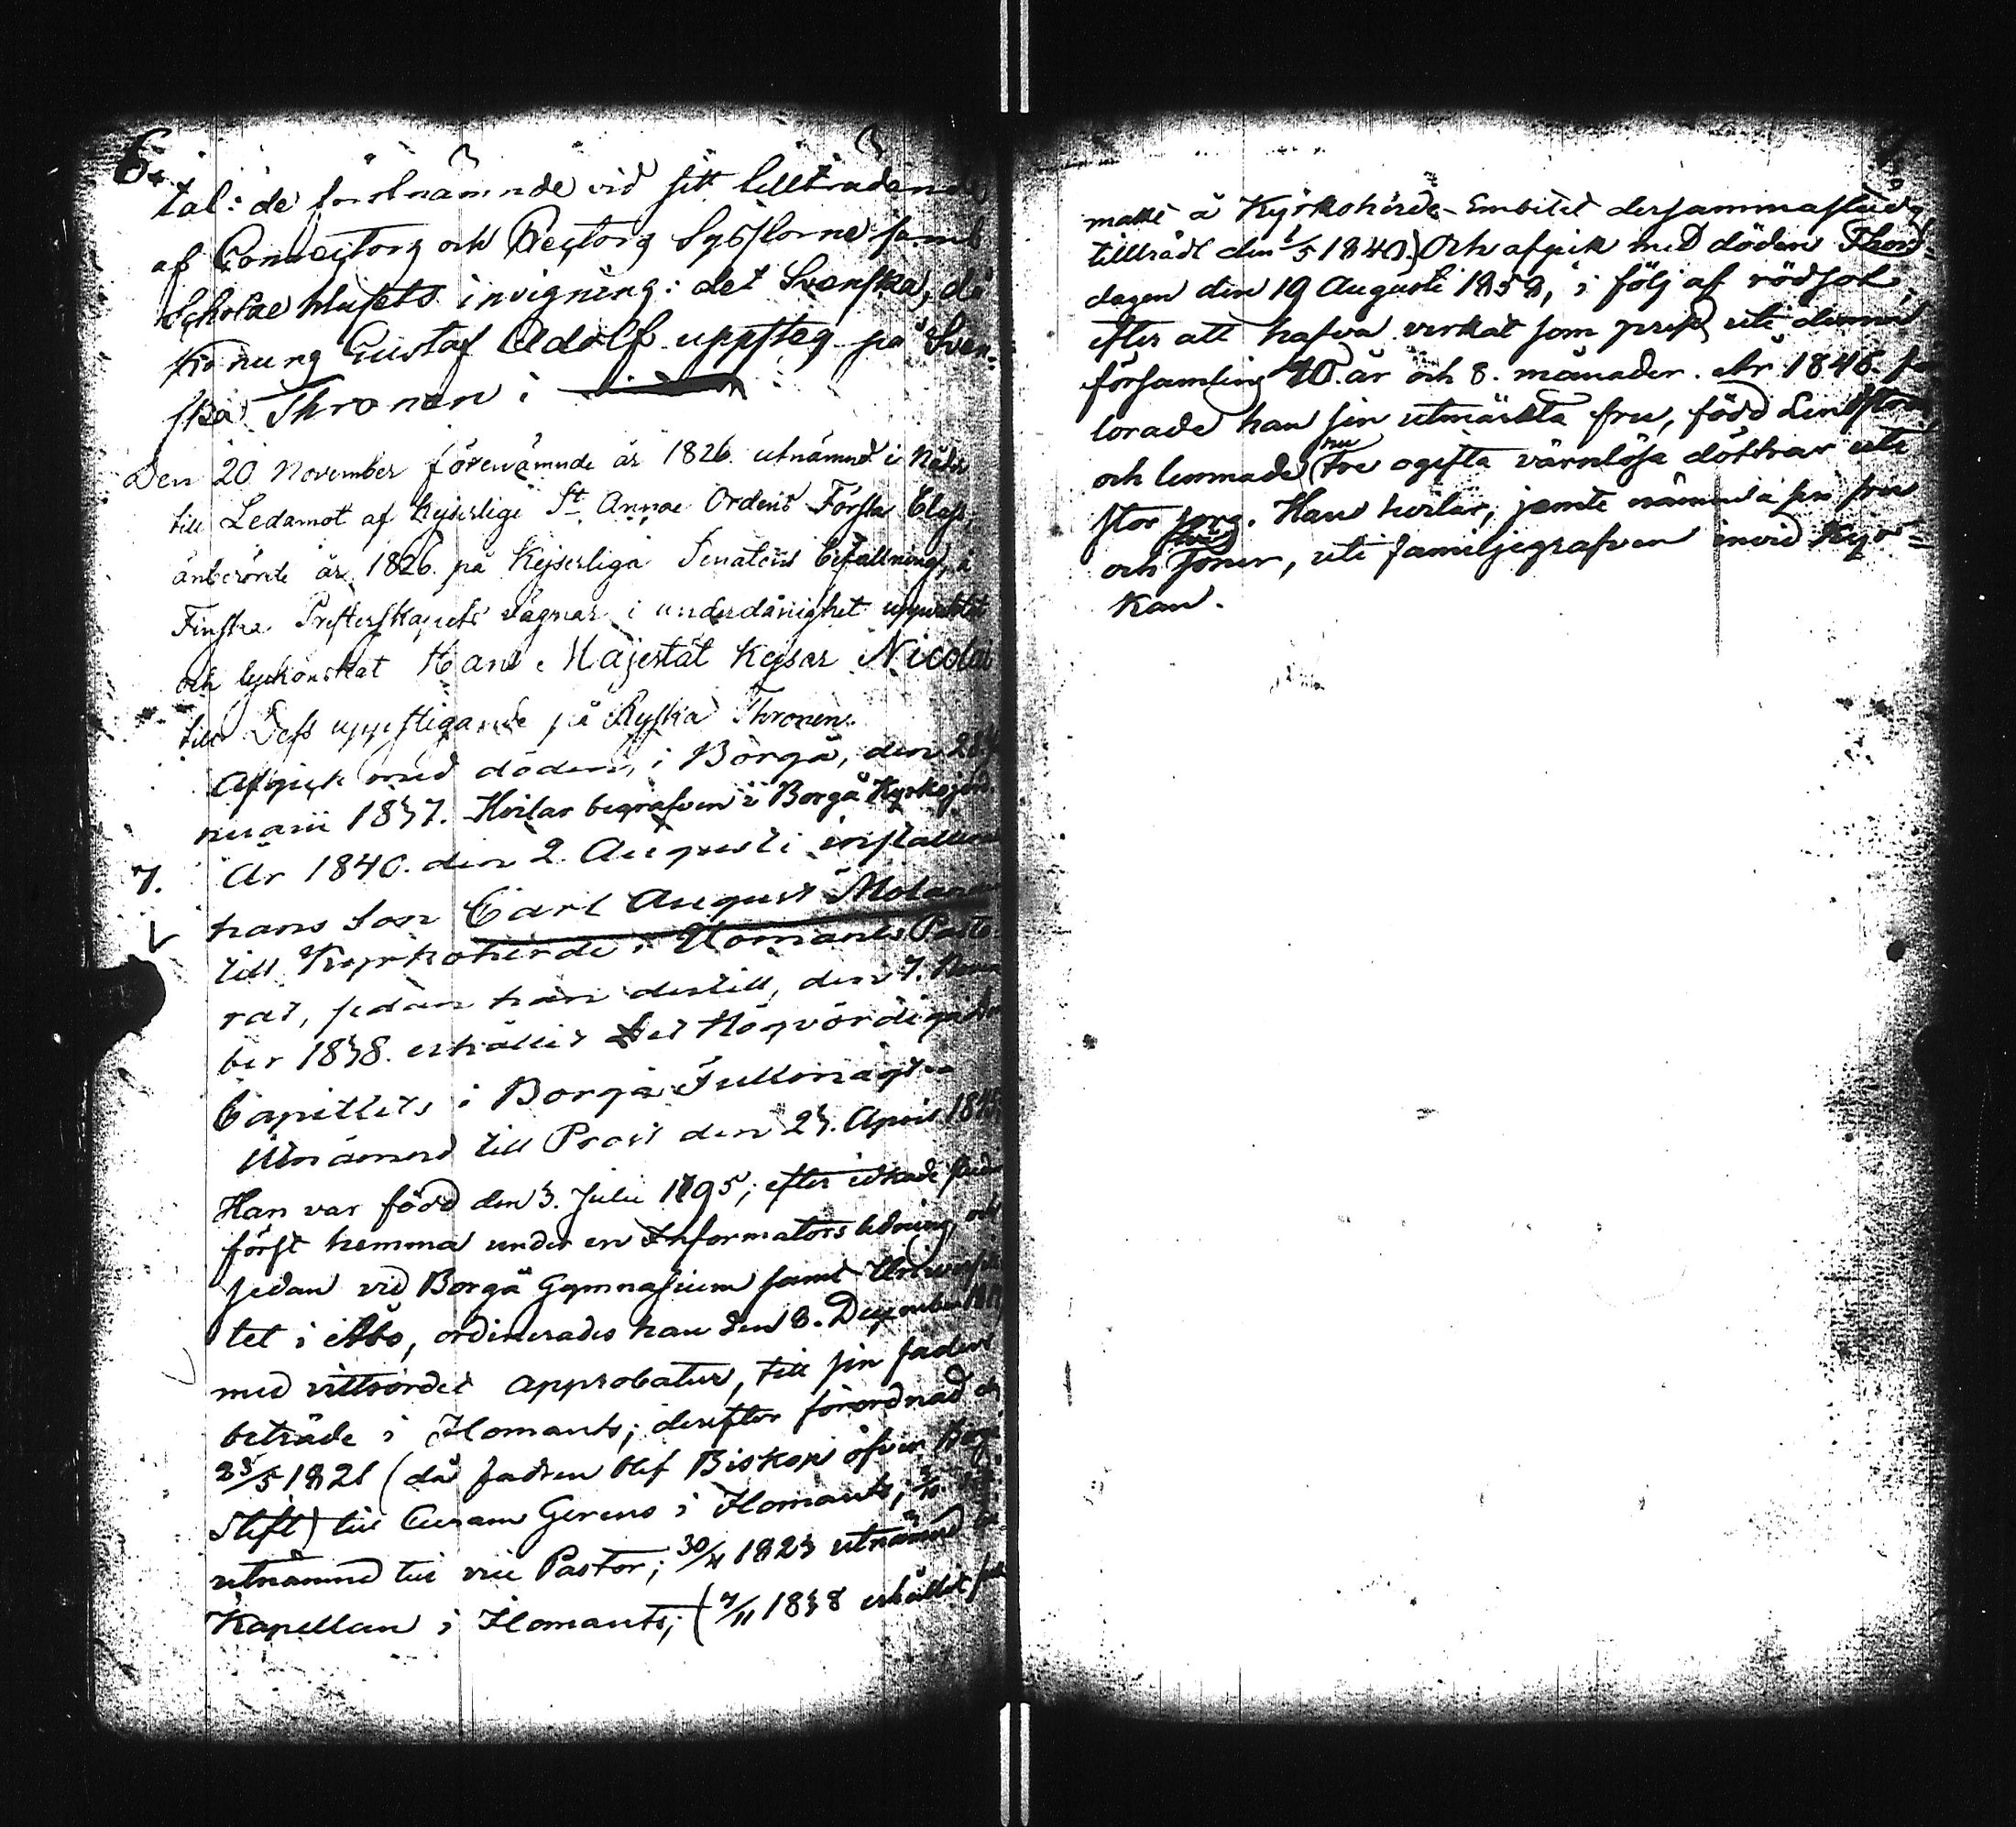 6.
tal: de förstnämnde vid sitt tillträdande
af Conrectors och Rectors Sysslorne samt
Scholae husets invigning: det Svenska, då
Konung Gustaf Adolf uppsteg på Sven-
ska Thronen i
Den 20 November förenämnde år 1826. utnämnd i Nåder
till Ledamot af Kejserlige St. Annae Ordens Första Class,
änberörde år 1826. på Kejserliga Senatens befallning, å
Finska Presterskapets vägnar i underdånighet uppvaktat
och lyckönskat Hans Majestät Kejsar Nicolai
till Dess uppstigande på Ryska Thronen.
Afgick med döden, i Borgå, den
nuarii 1837. Hvilar begrafven i Borgå Kyrkogård.
7. År 1840. den 2. Augusti installerad
hans Son Carl August Molander
till Kyrkoherde i Ilomants Pasto-
rat, sedan han dertill, den 7. Novem
ber 1838. erhållit Det Högvördiga Dom
Capitlets i Borgå Fullmagt.
Utnämnd till Prost den 23. April 1845
Han var född den 3. Julii 1795; efter idkade studier
först hemma under en Informators ledning, och
sedan vid Borgå Gymnasium samt Universite
tet i Åbo, ordinerades han den 8. December
med vittsordet approbatur, till sin faders
beträde i Ilomants; derefter förordnad den
23/5 1821 (då fadren blef Biskop öfver Borgå
Stift) till Curam Gerens i Ilomants;
utnämnd till vice Pastor; 30/4 1823 utnämnd till
Kapellan i Ilomants; (7/11 1838 erhållit full
makt å Kyrkoherde-Embetet dersammastädes,
tillträdt den 1/5 1840.) Och afgick med döden Thors-
dagen den 19 Augusti 1858, i följ af rödsot,
efter att hafva verkat som prest uti denna
församling 40. år och 8. månader. År 1846. för
lorade han sin utmärkta fru, född Lindstorm,
och lemnade tre ogifta värnlösa döttrar uti
stor sorg. Han hvilar, jemte nämnda sin fru
och söner, uti familjegrafven invid Kyr-
kan.